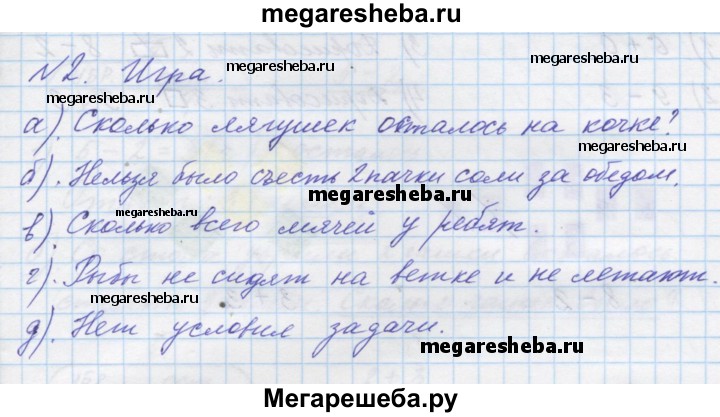 megaresheba.ru
№2. Игра.
megaresheba.ru
megaresheba.ru
megaresheba.ru
а). Сколько лягушек осталось на кочке?
megaresheba.ru
б). Нельзя было съесть 2 пачки соли за обедом.
megaresheba.ru
megaresheba.ru
в). Сколько всего мячей у ребят.
megaresheba.ru
г). Рыбы не сидят на ветке и не летают.
megaresheba.ru
д). Нет условия задачи.
megaresheba.ru
Мегарешеба.ру